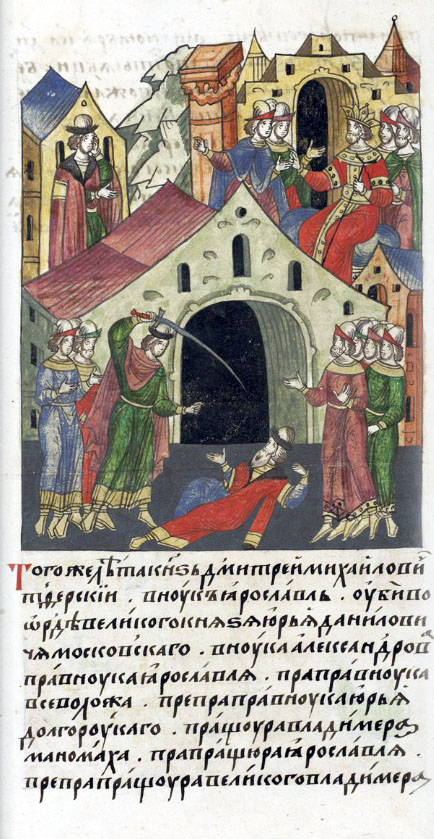 Тогоже лѣта кнѕь дмитреи михаилови
тферскии . вноукъ ꙗрославль . оуби во
ѡрдѣ великого кнѧѕѧ юрьѧ данилови
чѧ московскаго . вноука александров
правноука ꙗрославлѧ . праправноука
всеволожа . препраправноука юрьѧ
долгороукаго . пращоура владимерѧ
маномаха . прапращюра ꙗрославлѧ .
препрапращоура великого владимерѧ